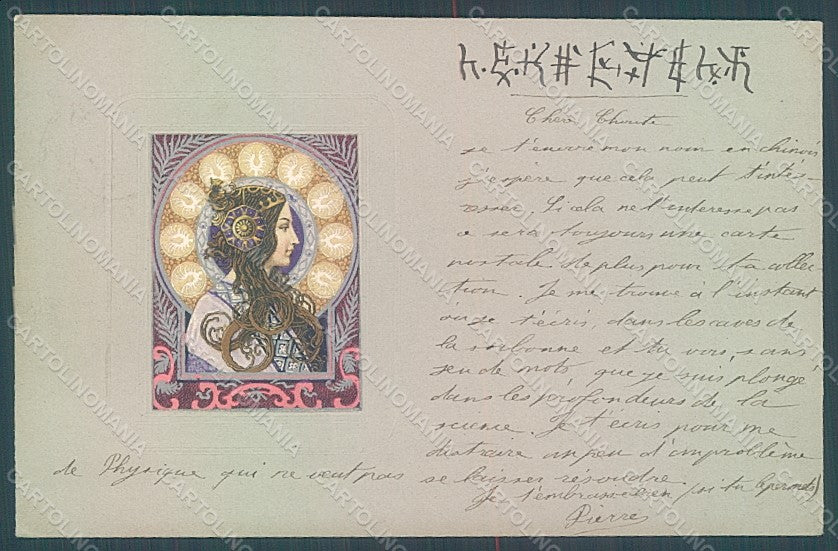 Chère Choute
je t'envoie mon nom en chinois
j'espère que cela peut t'inté-
resser. Si cela ne t'interesse pas
ce sera toujours une carte
postale de plus pour ta collec-
tion. Je me trouve à l'instant
où je t'écris, dans les caves de
la sorbonne et tu vois, sans
jeu de mots que je suis plongé
dans les profondeurs de la
science. Je t'écris pour me
distraire un peu d'un problème
de Physique qui ne veut pas se laisser résoudre.
Je t'embrasse bien (si tu le permets)
Pierre
CARTOLINOMANIA